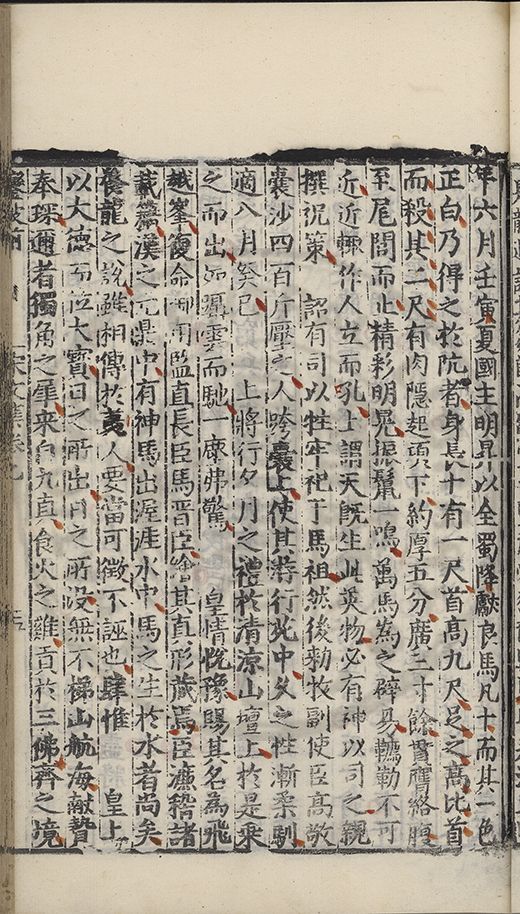 年六月壬寅夏國主明昇以全蜀降獻良馬凡十而其一色
正白乃得之於阬者身長十有一尺首高九尺足之高比首
而殺其二尺有肉隱起項下約厚五分廣三寸餘貫膺絡腹
至尾閭而止精彩明晃振鬣一鳴萬馬為之辟易鞿勒不可
近近輒作人立而吼上謂天旣生此英物必有神以司之親
撰祝策 詔有司以牲牢祀于馬祖然後勑牧副使臣高敬
囊沙四百斤壓之人跨囊上使其游行苑中久之性漸柔馴
適八月癸巳 上將行夕月之禮於清凉山壇上於是乗
之而出如躡雲而馳一塵弗驚 皇情悅豫賜其名為飛
越峯復命御用監直長臣馬晋臣繪其真形藏焉臣濂稽諸
載籍漢之元鼎中有神馬出渥洼水中馬之生於水者尚矣
養龍之說雖相傳於夷人要當可徵不誣也肆惟 皇上
以大德而位大寶日之所出月之所没無不梯山航海獻贄
奉琛邇者獨角之犀來自九真食火之雞貢於三佛齊之境